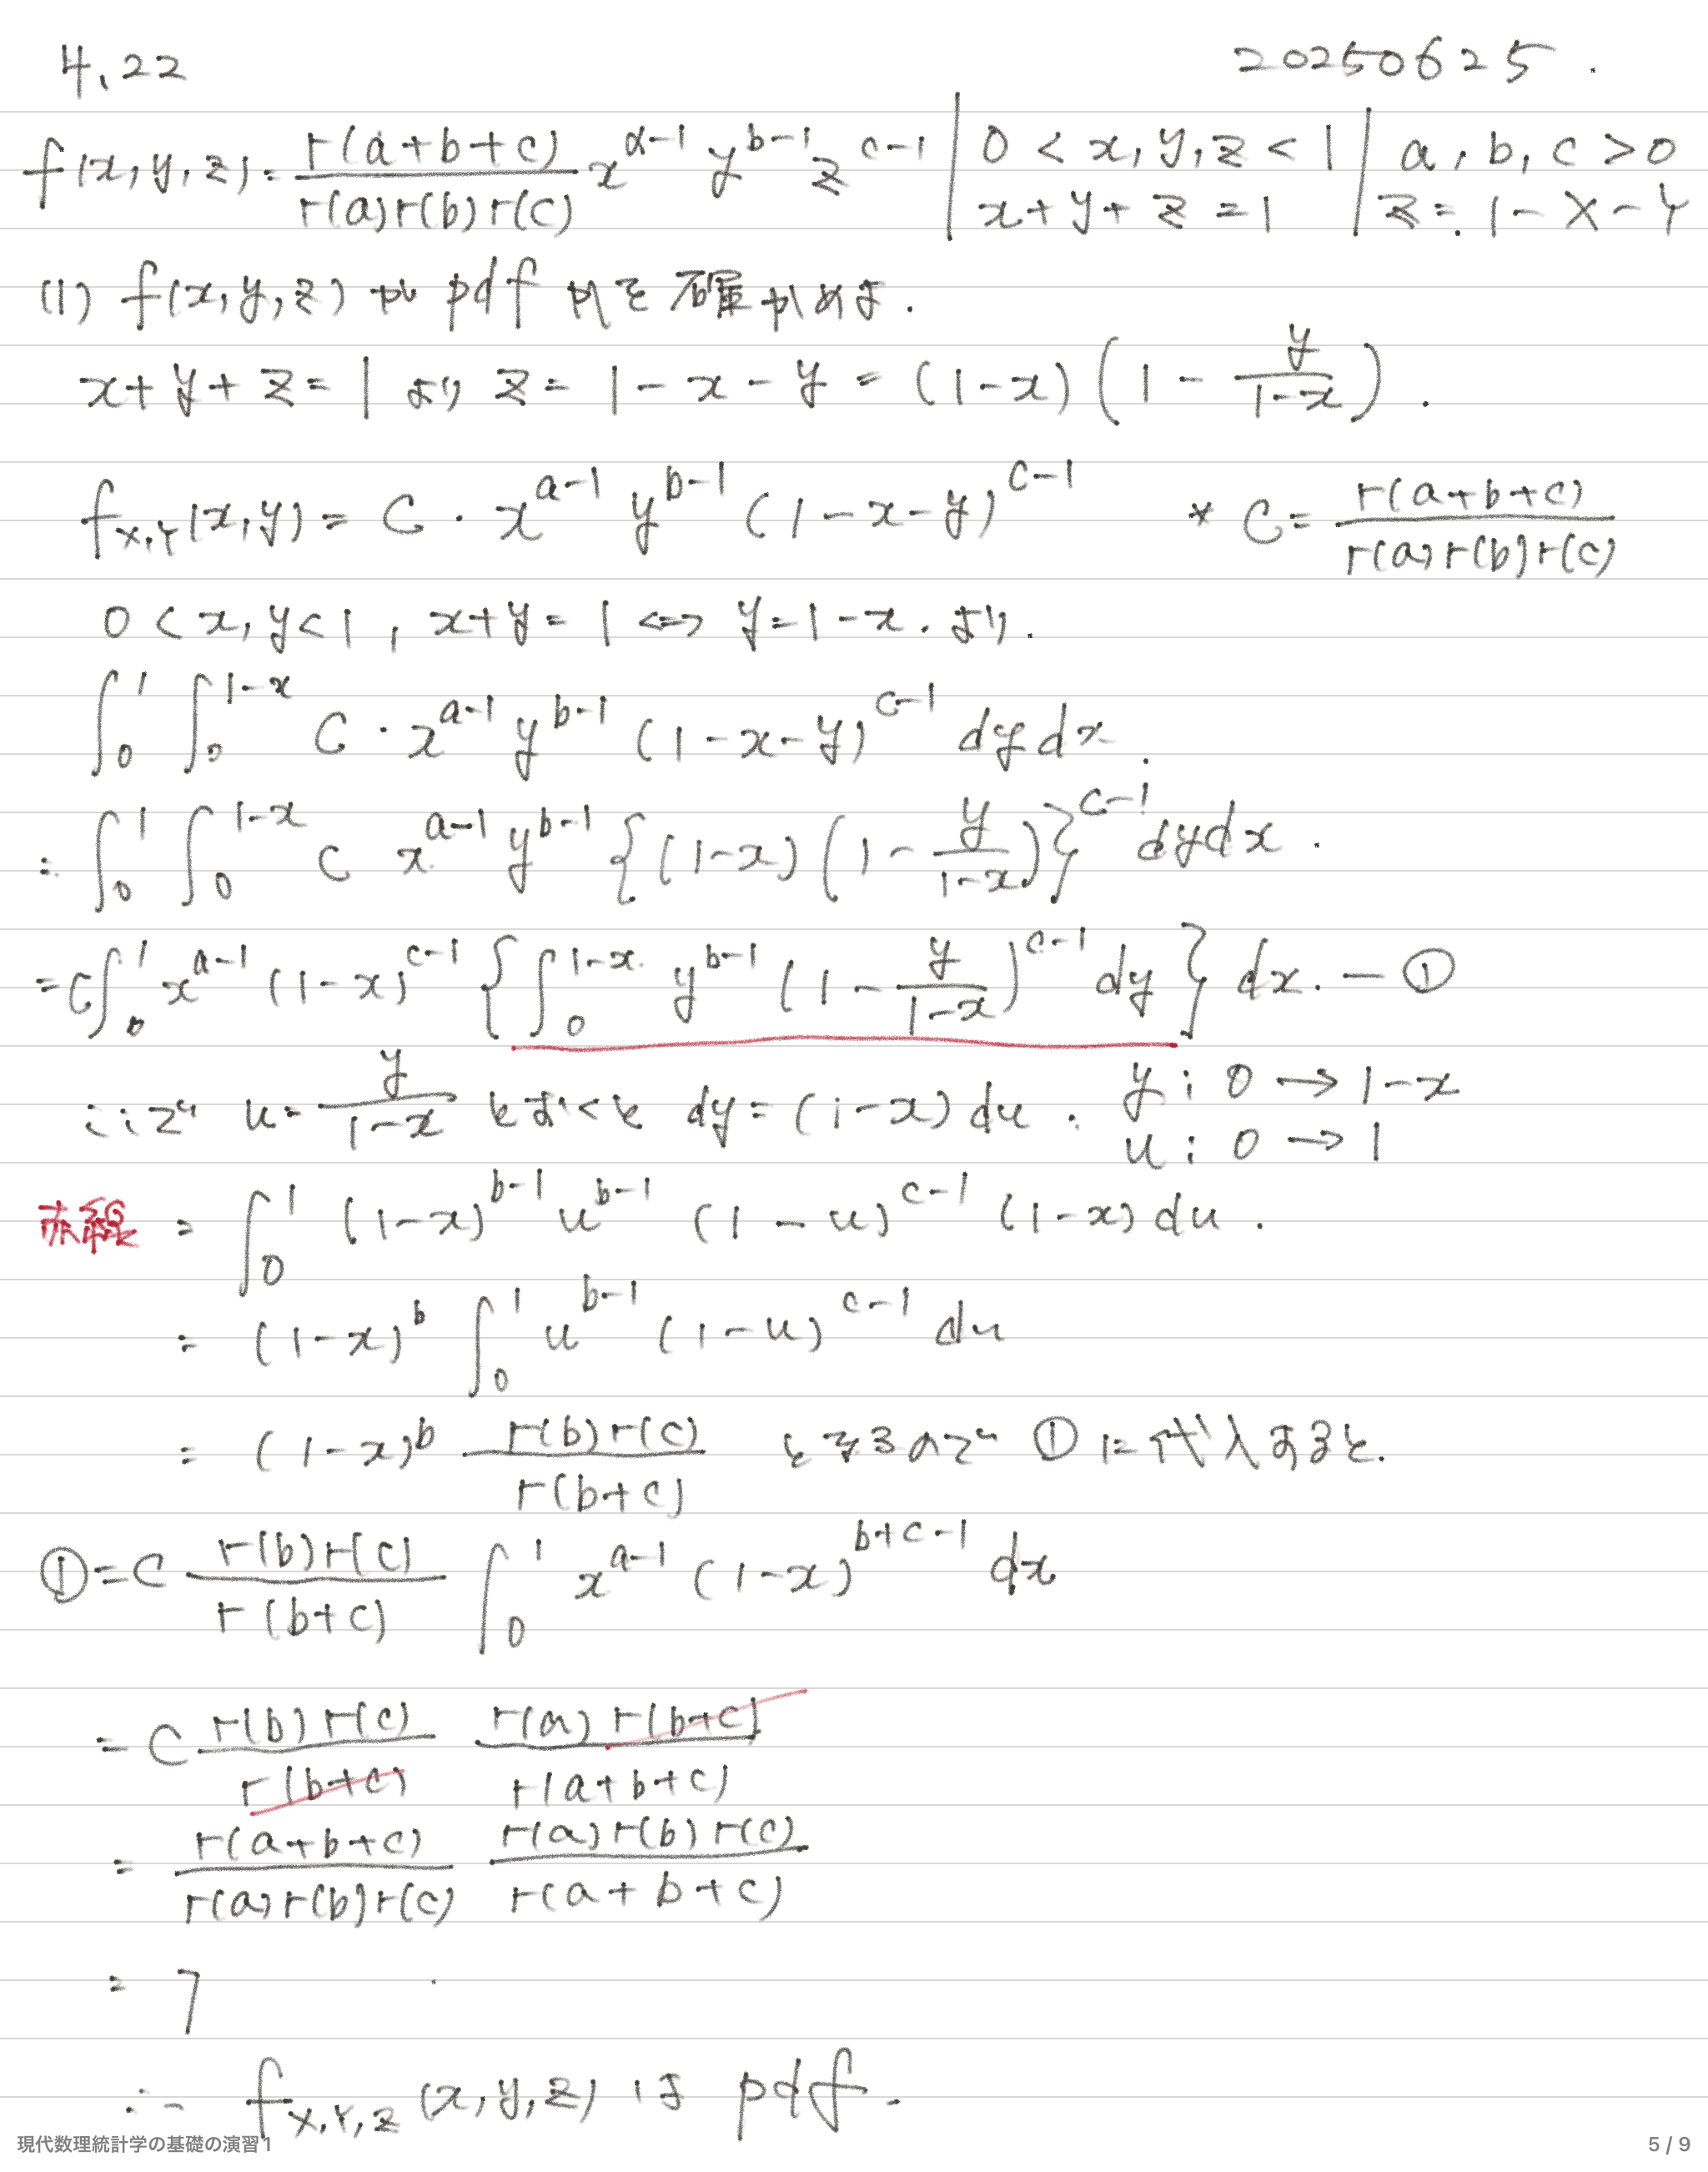 4.22 20250625.
f(x,y,z) = r(a+b+c)/r(a)r(b)r(c) x^{a-1} y^{b-1} z^{c-1} | 0 < x,y,z < 1 | a, b, c > 0
x+y+z = 1 | z = 1-X-Y
(1) f(x,y,z)がpdfかを確かめよ.
x+y+z = 1 より z = 1-x-y = (1-x)(1 - y/(1-x)).
f_{X,Y}(x,y) = C・x^{a-1} y^{b-1} (1-x-y)^{c-1} * C = r(a+b+c)/r(a)r(b)r(c)
0 < x, y < 1, x+y = 1 ⟺ y = 1-x. より.
∫_0^1 ∫_0^{1-x} C・x^{a-1} y^{b-1} (1-x-y)^{c-1} dy dx.
= ∫_0^1 ∫_0^{1-x} C x^{a-1} y^{b-1} {(1-x)(1 - y/(1-x))}^{c-1} dydx.
= C∫_0^1 x^{a-1} (1-x)^{c-1} {∫_0^{1-x} y^{b-1} (1 - y/(1-x))^{c-1} dy} dx. — ①
ここで u = y/(1-x) とおくと dy = (1-x) du. y : 0 → 1-x
u : 0 → 1
赤線 = ∫_0^1 (1-x)^{b-1} u^{b-1} (1-u)^{c-1} (1-x) du.
= (1-x)^b ∫_0^1 u^{b-1} (1-u)^{c-1} du
= (1-x)^b r(b)r(c)/r(b+c) となるので ①に代入すると.
① = C r(b)r(c)/r(b+c) ∫_0^1 x^{a-1} (1-x)^{b+c-1} dx
= C r(b)r(c)/r(b+c) r(a)r(b+c)/r(a+b+c)
= r(a+b+c)/r(a)r(b)r(c) r(a)r(b)r(c)/r(a+b+c)
= 1
∴ f_{X,Y,Z}(x,y,z) は pdf.
現代数理統計学の基礎の演習1 5 / 9